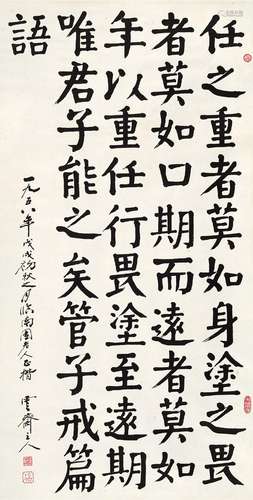 任之重者莫如身塗之畏
者莫如口期而遠者莫如
年以重任行畏塗至遠期
唯君子能之矣管子戒篇
語
一九五八年戊戌初秋之臨南園老人正楷 雲齋主人